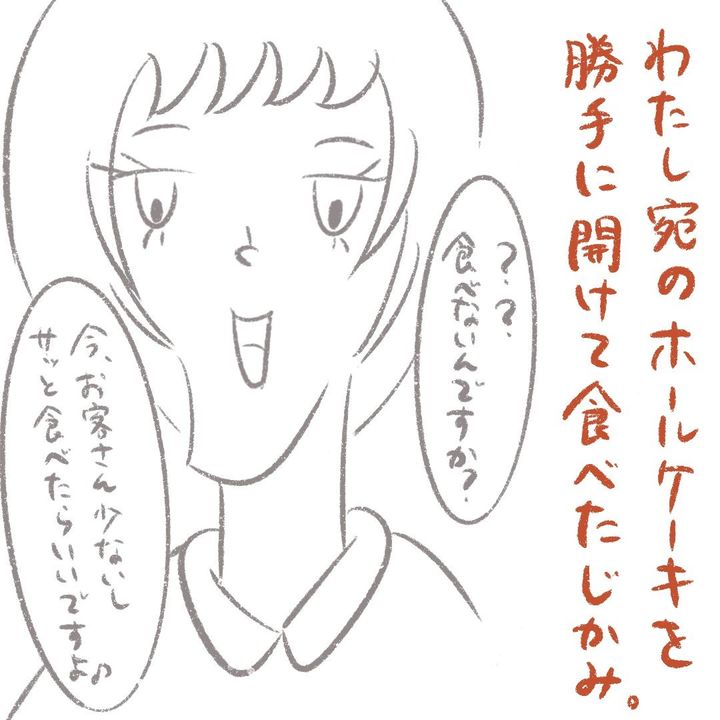 わたし宛のホールケーキを
勝手に開けて食べたじかみ。
?·?.
食べないんですか?.
今、お客さん少ないし
サッと食べたらいいですよ♪